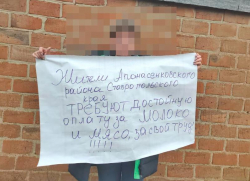 Жители Апанасенковского
района Ставропольского
края
ТРЕБУЮТ ДОСТОЙНУЮ
оплату за МОЛОКО
и МЯСО, за свой ТРУД
!!!!!